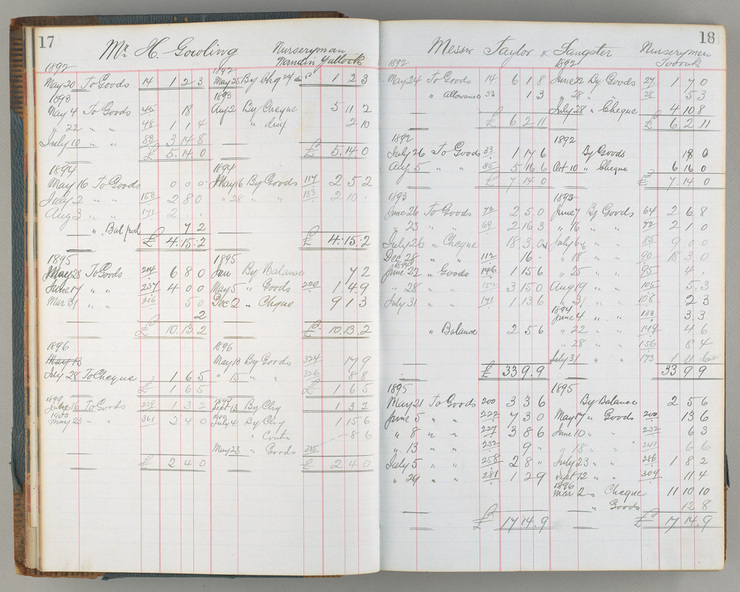 17
Mr H. Gowling Nurseryman
1892 1892
May 20 To Goods 14 1 2 3 May 25 By Chq 1 2 3
1893 1893
May 4 To Goods 45 18 Aug 2 By Cheque 5 11 2
" 22 " " 48 1 1 4 " " disc 2 10
July 10 " " 3 14 8
£ 5.14.0 £ 5.14.0
1894 1894
May 16 To Goods May 16 By Goods 117 2 5 2
July 2 " " 153 2 8 0 " 28 " " 153 2 10
Aug 3 " " 171 2
" Bal 7 2
£ 4.15.2 £ 4.15.2
1895 1895
May 28 To Goods 204 6 8 0 Jan By Balance 7 2
June 17 " " 237 4 0 0 May 5 " Goods 220 1 4 9
Mar 31 " " 5 0 Dec 2 " Cheque 9 1 3
2
£ 10.13.2 £ 10.13.2
1896 1896
May 18 By Goods 324 7 9
July 28 To Cheque 1 6 5 " 15 " " 326 8 8
£ 1 6 5 £ 1 6 5
June 16 To Goods 1 3 2 Sept 13 By Chq 1 3 2
May 23 " " 361 2 4 0 July 4 By Chq 1 15 6
" Contra 8 6
May 23 " Goods
£ 2 4 0 £ 2 4 0
18
Messrs Taylor & Sangster Nurserymen
Toorak
1892 1892
May 24 To Goods 14 6 1 8 June 22 By Goods 27 1 7 0
" Allowance 1 3 " 28 " " 28 5 3
July 28 " Cheque 4 10 8
£ 6 2 11 £ 6 2 11
1892 1892
July 26 To Goods 33 1 7 6 By Goods 18 0
Aug 5 " " 35 5 16 6 Oct 10 " Cheque 6 16 0
£ 7 14 0 £ 7 14 0
1893 1893
June 26 To Goods 72 2 5 0 June 7 By Goods 64 2 6 8
" 23 " " 69 2 16 3 " 16 " " 72 2 1 0
July 26 " Cheque 18 3 July 6 " " 85 9 0 0
Dec 28 " " 112 16 " 18 " " 90 15 3 0
June 22 " Goods 146 1 15 6 " 25 " " 95 4
" 28 " " 152 3 15 0 Aug 19 " " 105 5 3
July 31 " " 171 1 13 6 " 31 " " 108 2 3
1894
June 4 " " 3 3
" Balance 2 5 6 " 22 " " 149 4 6
" 28 " " 156 8 4
July 31 " " 173
£ 33 9 9 33 9 9
1895 1895
May 21 To Goods 200 3 3 6 By Balance 2 5 6
June 5 " " 222 7 3 0 May 17 " Goods 200 13 6
" 8 " " 227 3 8 6 June 10 " " 232 6 3
" 13 " " 232 9 " 18 " " 241 6 6
July 5 " " 258 2 8 July 23 " " 286 1 8 2
" 29 " " 281 1 2 9 Sept 12 " " 304 11 4
1896
Mar 2 " Cheque 11 10 10
" Goods 12 8
£ 17 14.9 £ 17 14.9